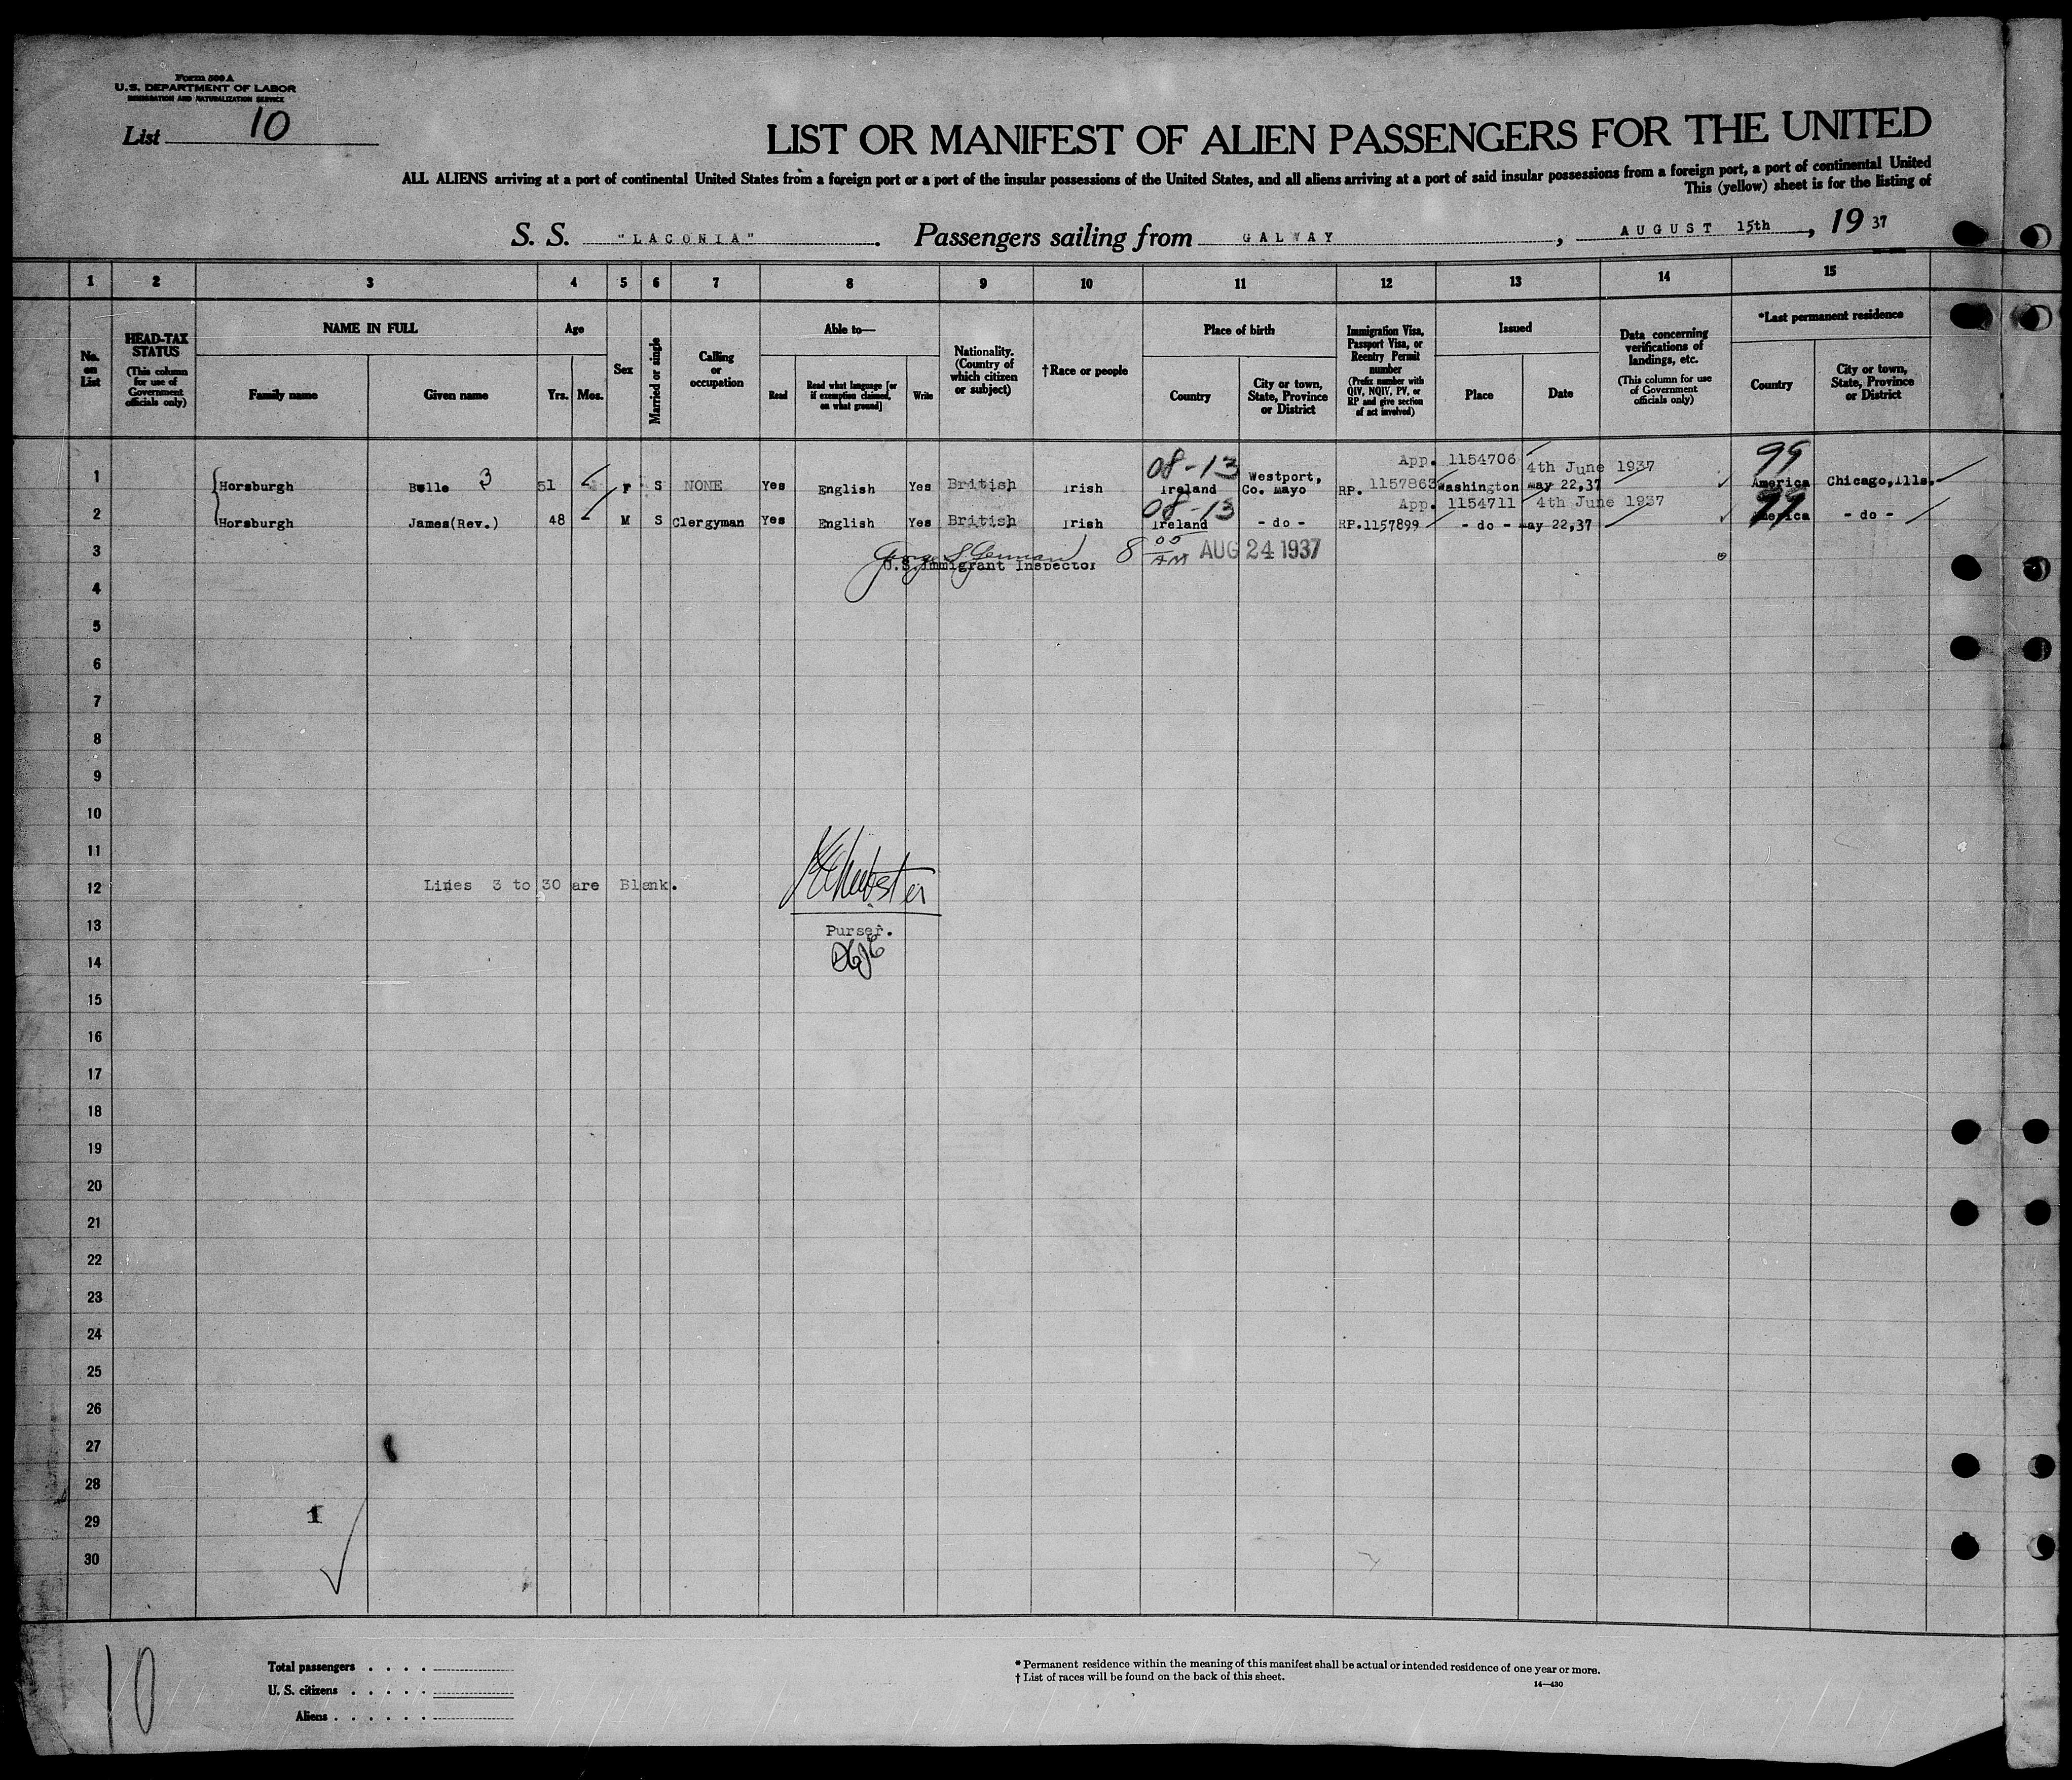 Form 500 A
U.S. DEPARTMENT OF LABOR
IMMIGRATION AND NATURALIZATION SERVICE
List 10
LIST OR MANIFEST OF ALIEN PASSENGERS FOR THE UNITED
ALL ALIENS arriving at a port of continental United States from a foreign port or a port of the insular possessions of the United States, and all aliens arriving at a port of said insular possessions from a foreign port, a port of continental United
This (yellow) sheet is for the listing of
S. S. "LACONIA". Passengers sailing from GALWAY, AUGUST 15th, 19 37
1 2 3 4 5 6 7 8 9 10 11 12 13 14 15
No. on List
HEAD-TAX STATUS
(This column for use of Government officials only)
NAME IN FULL
Family name
Given name
Age
Yrs. Mos.
Sex
Married or single
Calling or occupation
Able to—
Read
Read what language [or if exemption claimed, on what ground]
Write
Nationality. (Country of which citizen or subject)
†Race or people
Place of birth
Country
City or town, State, Province or District
Immigration Visa, Passport Visa, or Reentry Permit number
(Prefix number with QIV, NQIV, PV, or RP and give section of act involved)
Issued
Place
Date
Data concerning verifications of landings, etc.
(This column for use of Government officials only)
*Last permanent residence
Country
City or town, State, Province or District
08-13 App. 1154706 4th June 1937 99
1 Horsburgh Belle 3 51 F S NONE Yes English Yes British Irish Ireland Westport, Co. Mayo RP. 1157863 Washington May 22,37 America Chicago, Ills.
08-13 App. 1154711 4th June 1937 99
2 Horsburgh James(Rev.) 48 M S Clergyman Yes English Yes British Irish Ireland - do - RP.1157899 - do - May 22,37 America - do -
3 8 00 AM AUG 24 1937
U.S. Immigrant Inspector
4
5
6
7
8
9
10
11
12 Lines 3 to 30 are Blank. Webster
13 Purser.
14
15
16
17
18
19
20
21
22
23
24
25
26
27
28
29 1
30
10
Total passengers
U. S. citizens
Aliens
* Permanent residence within the meaning of this manifest shall be actual or intended residence of one year or more.
† List of races will be found on the back of this sheet.
14—430